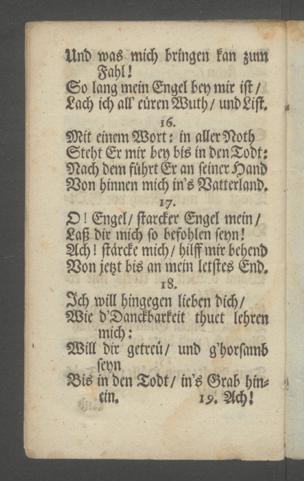 Und was mich bringen kan zum
Fahl!
So lang mein Engel bey mir ist /
Lach ich all' eüren Wuth / und List.
16.
Mit einem Wort: in aller Noth
Steht Er mir bey bis in den Todt:
Nach dem führt Er an seiner Hand
Von hinnen mich in's Vatterland.
17.
O! Engel / starcker Engel mein /
Laß dir mich so befohlen seyn!
Ach! stärcke mich / hilff mir behend
Von jetzt bis an mein letstes End.
18.
Ich will hingegen lieben dich /
Wie d'Danckbarkeit thuet lehren
mich:
Will dir getreü / und g'horsamb
seyn
Bis in den Todt / in's Grab hin-
ein. 19. Ach!